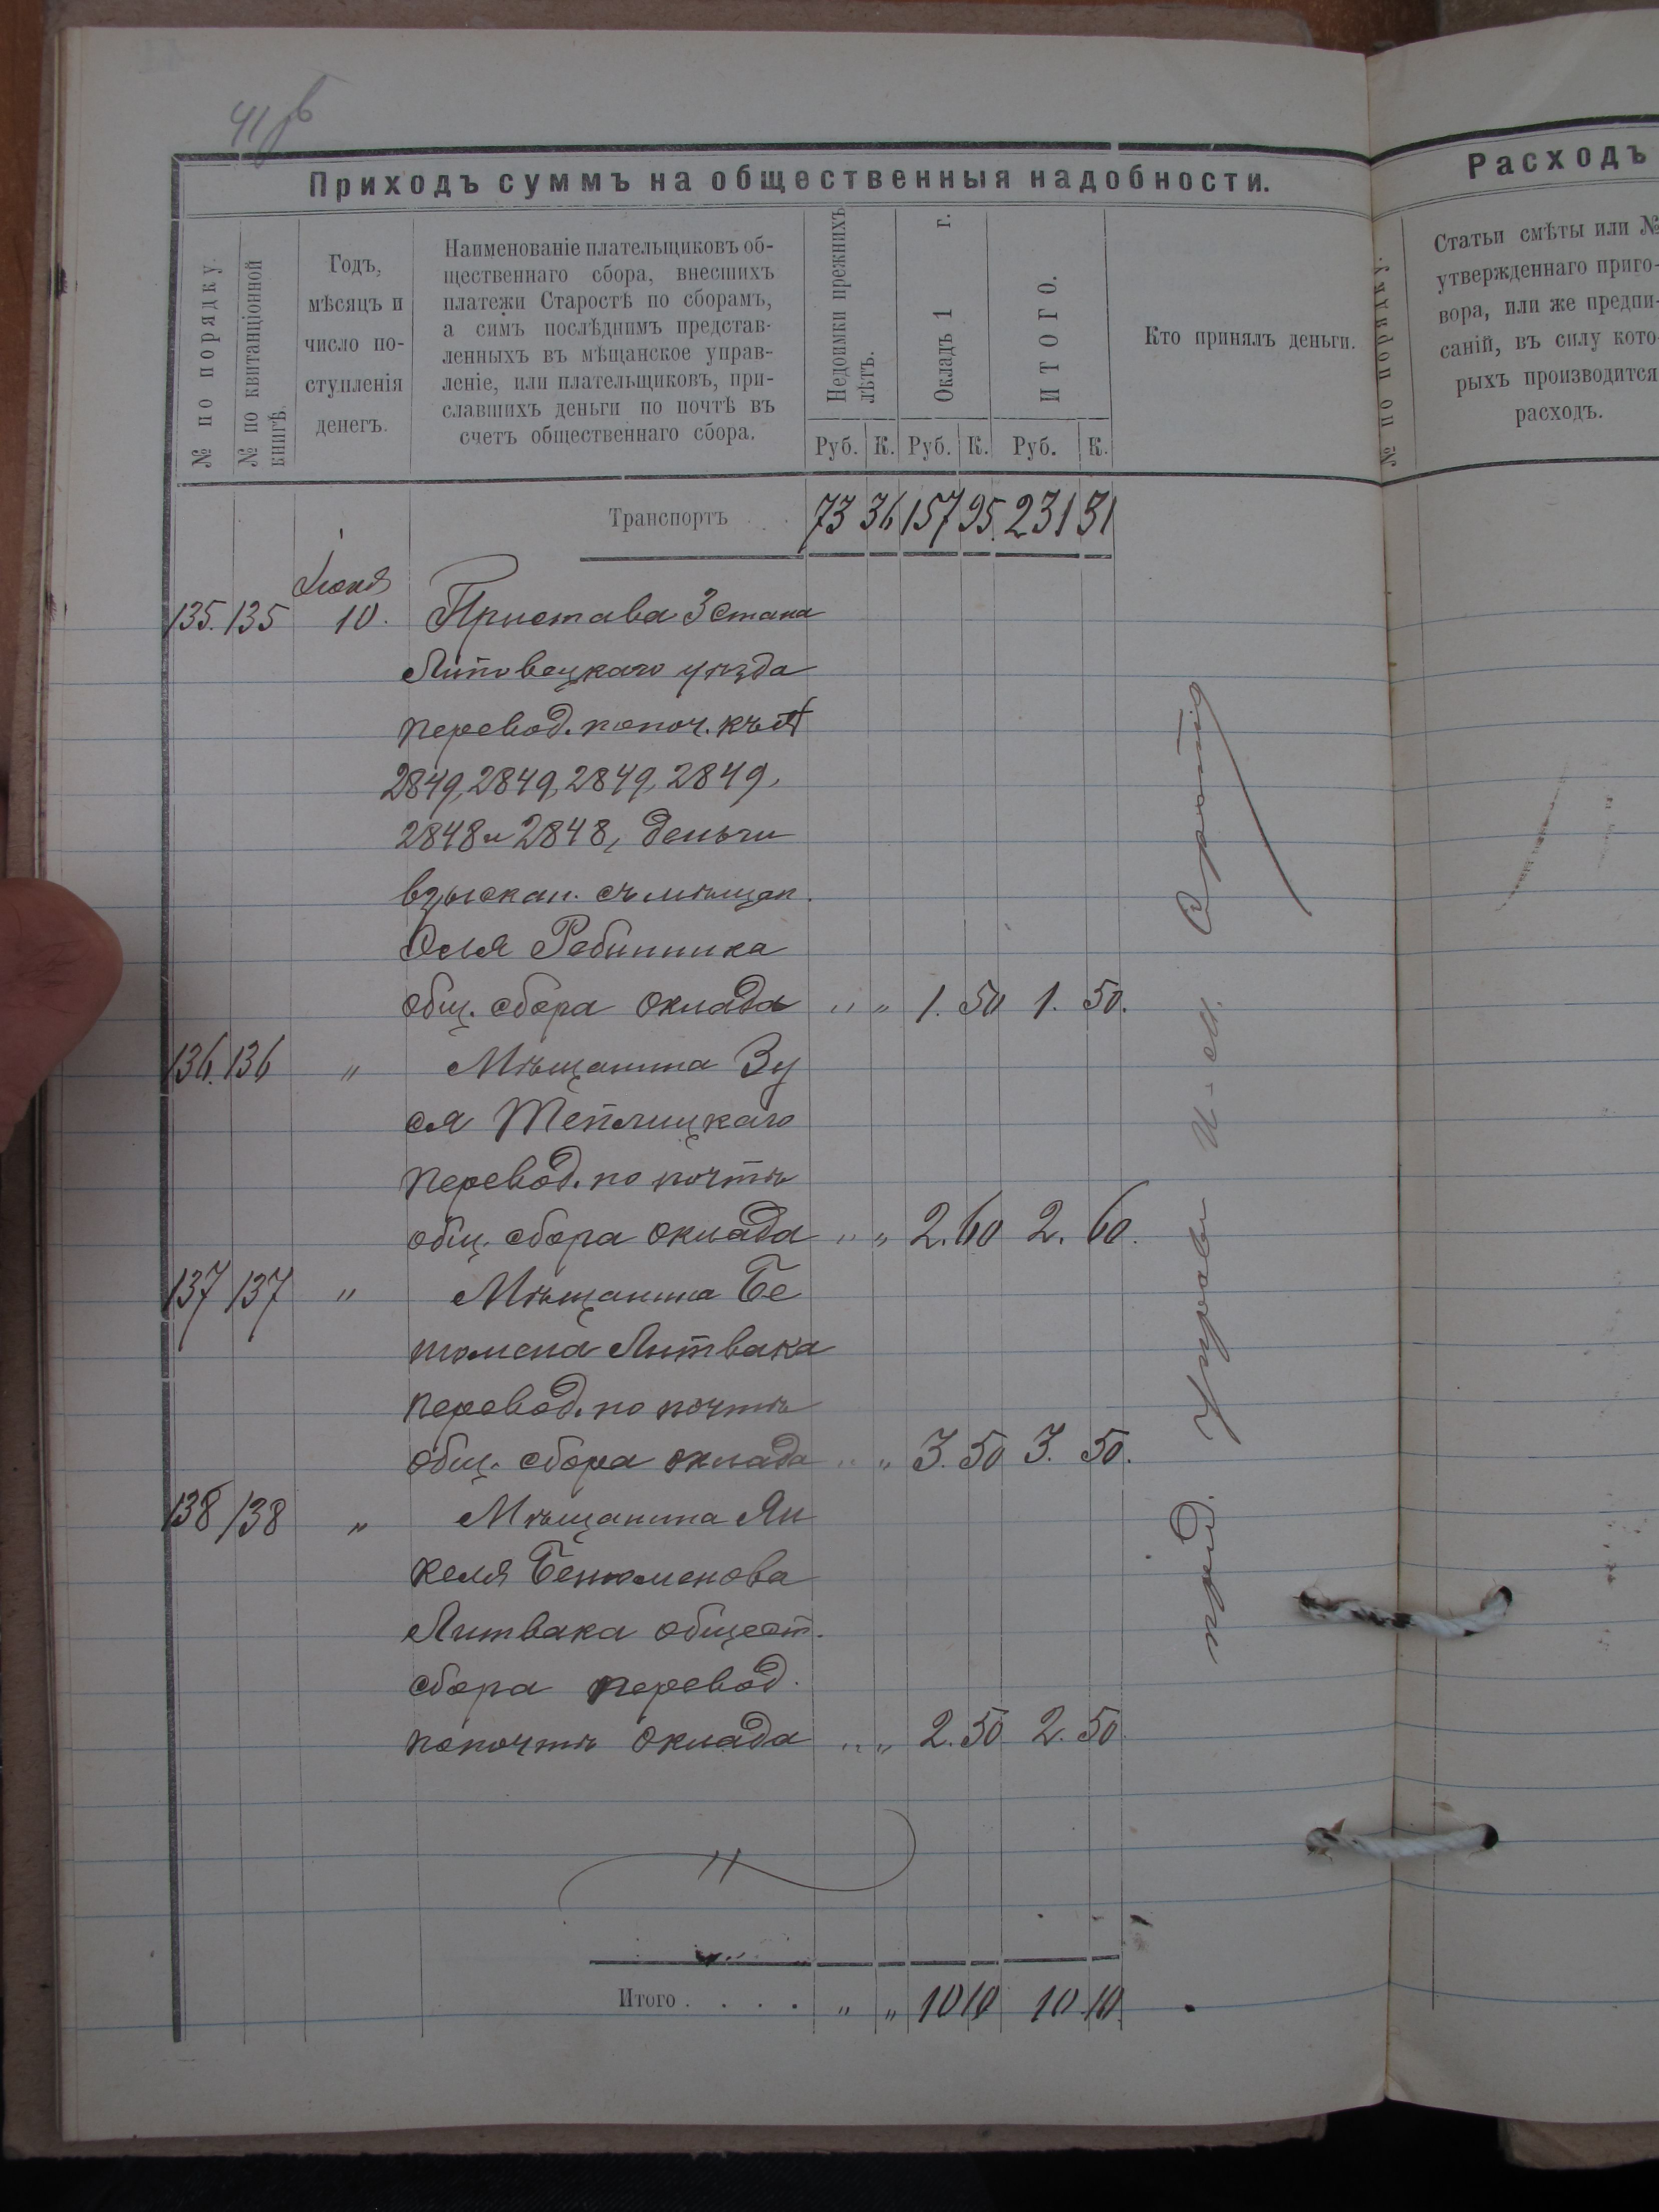 41 об
Приходъ суммъ на общественныя надобности.
№ по порядку.
№ по квитанціонной
книгѣ.
Годъ,
мѣсяцъ и
число по-
ступленія
денегъ.
Наименованіе плательщиковъ об-
щественнаго сбора, внесшихъ
платежи Старостѣ по сборамъ,
а симъ послѣднимъ представ-
ленныхъ въ мѣщанское управ-
леніе, или плательщиковъ, при-
славшихъ деньги по почтѣ въ
счетъ общественнаго сбора.
Недоимки прежнихъ
лѣтъ.
Окладъ 1 г.
ИТОГО.
Кто принялъ деньги.
Руб. К. Руб. К. Руб. К.
Транспортъ . . 73 36 157 95. 231 31
Іюня
135. 135 10. Пристава 3 стана
Липовецкаго уѣзда
перевод. по поч. къ №
2849, 2849, 2849, 2849,
2848 и 2848, деньги
взыскан. съ мѣщан.
Рабинника
общ. сбора оклада " " 1. 50 1. 50.
136. 136 " Мѣщанина Зу
ся Теплицкаго
перевод. по почтѣ
общ. сбора оклада " " 2. 60 2. 60.
137 137 " Мѣщанина Бе
нюмена Литвака
перевод. по почтѣ
общ. сбора оклада " " 3. 50 3. 50.
138 138 " Мѣщанина Ян
келя Бенюменова
Литвака общест.
сбора перевод.
по почтѣ оклада " " 2. 50 2. 50.
Итого . . . . " " 10 10 10. 10.
Расходъ
№ по порядку.
Статьи смѣты или №
утвержденнаго приго-
вора, или же предпи-
саній, въ силу кото-
рыхъ производится
расходъ.